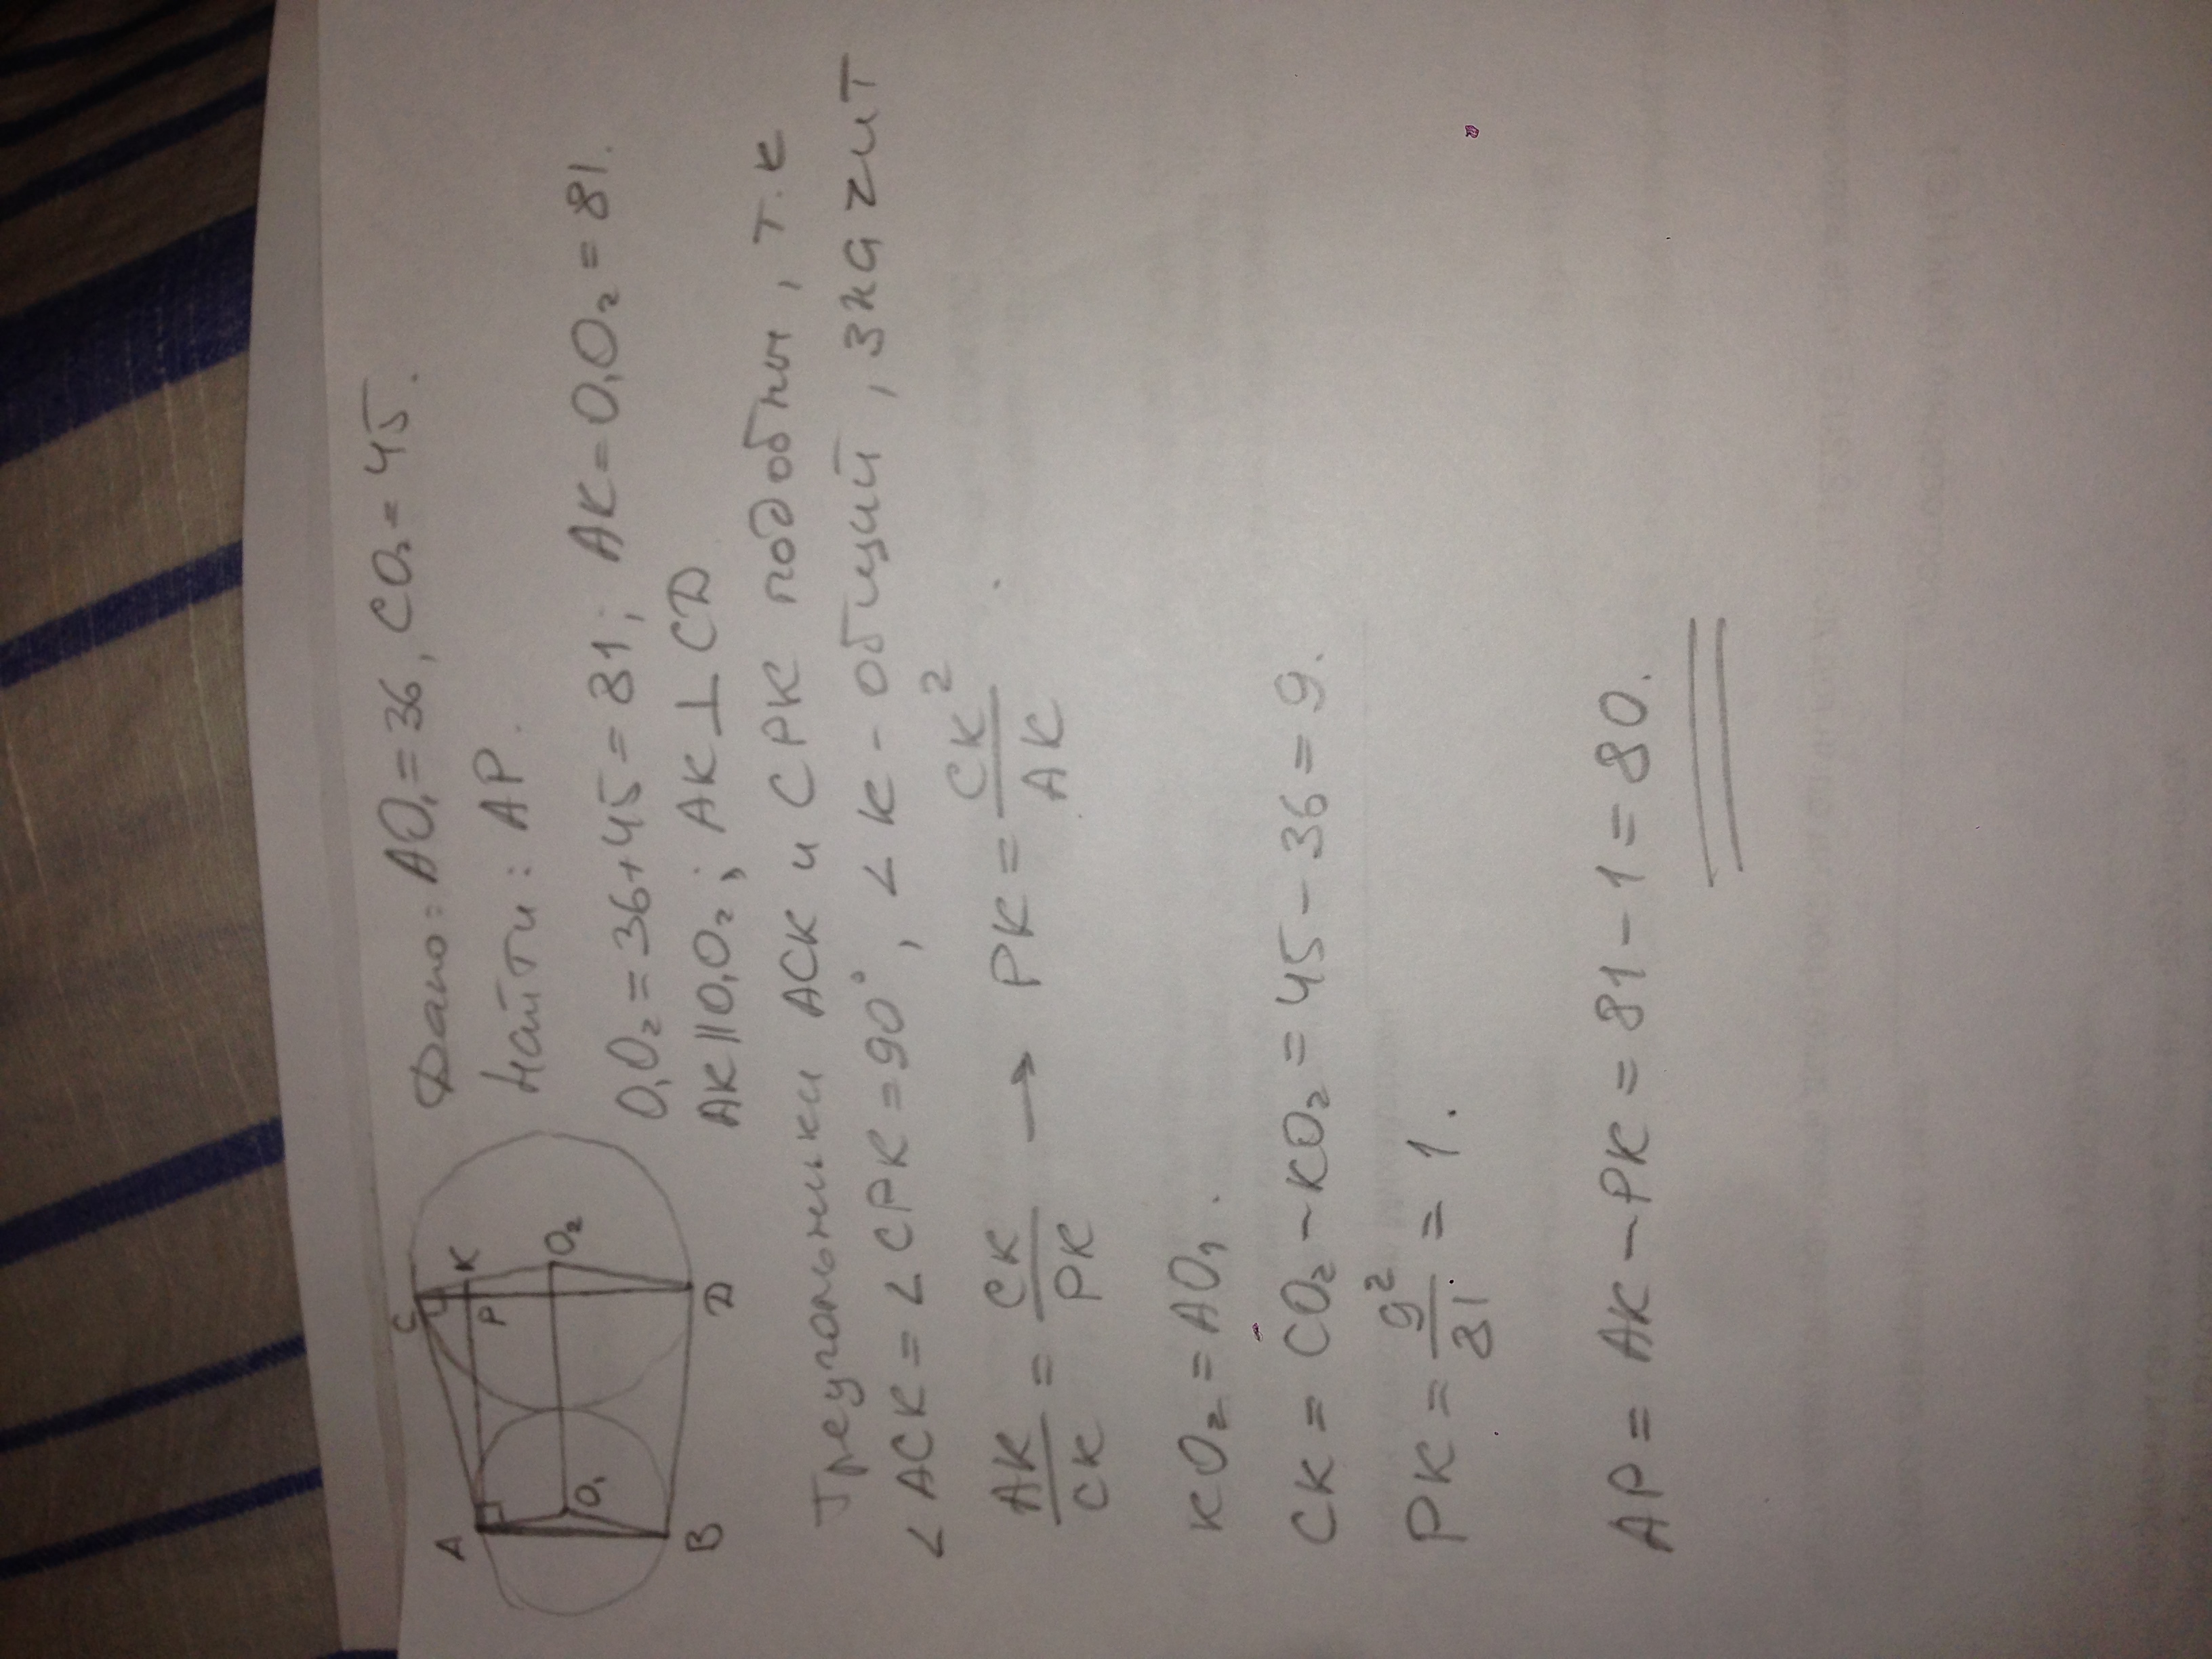 A
B
C
P
K
D
O₁
O₂
Дано: AO₁ = 36, CO₂ = 45.
Найти: AP.
O₁O₂ = 36+45 = 81; AK = O₁O₂ = 81.
AK || O₁O₂; AK ⊥ CD
Треугольники ACK и CPK подобны, т.к
∠ ACK = ∠ CPK = 90°, ∠ K - общий, значит
AK/CK = CK/PK → PK = CK²/AK.
KO₂ = AO₁.
CK = CO₂ - KO₂ = 45 - 36 = 9.
PK = 9²/81 = 1.
AP = AK - PK = 81 - 1 = 80.